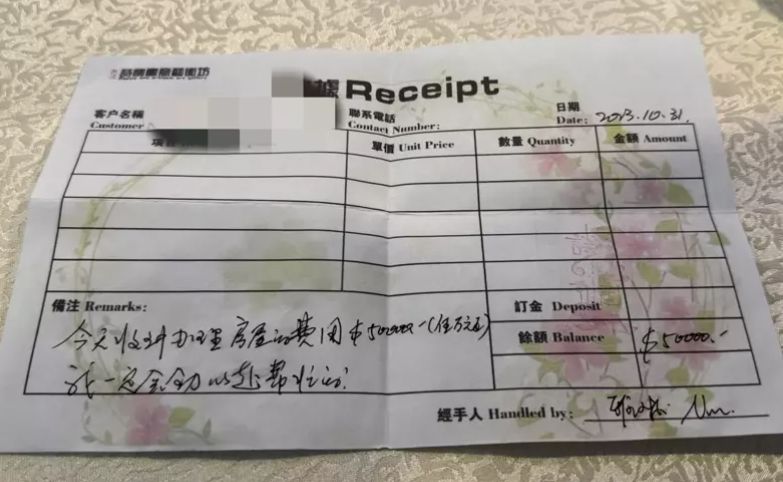 據 Receipt
客户名稱
Customer
聯系電話
Contact Number:
日期
Date: 2023.10.31.
單價 Unit Price
數量 Quantity
金額 Amount
備注 Remarks:
今天收到办理房屋的费用 $50000-(伍万元)
我一定会全力以赴帮忙的.
訂金 Deposit
餘額 Balance
$50000.-
經手人 Handled by: